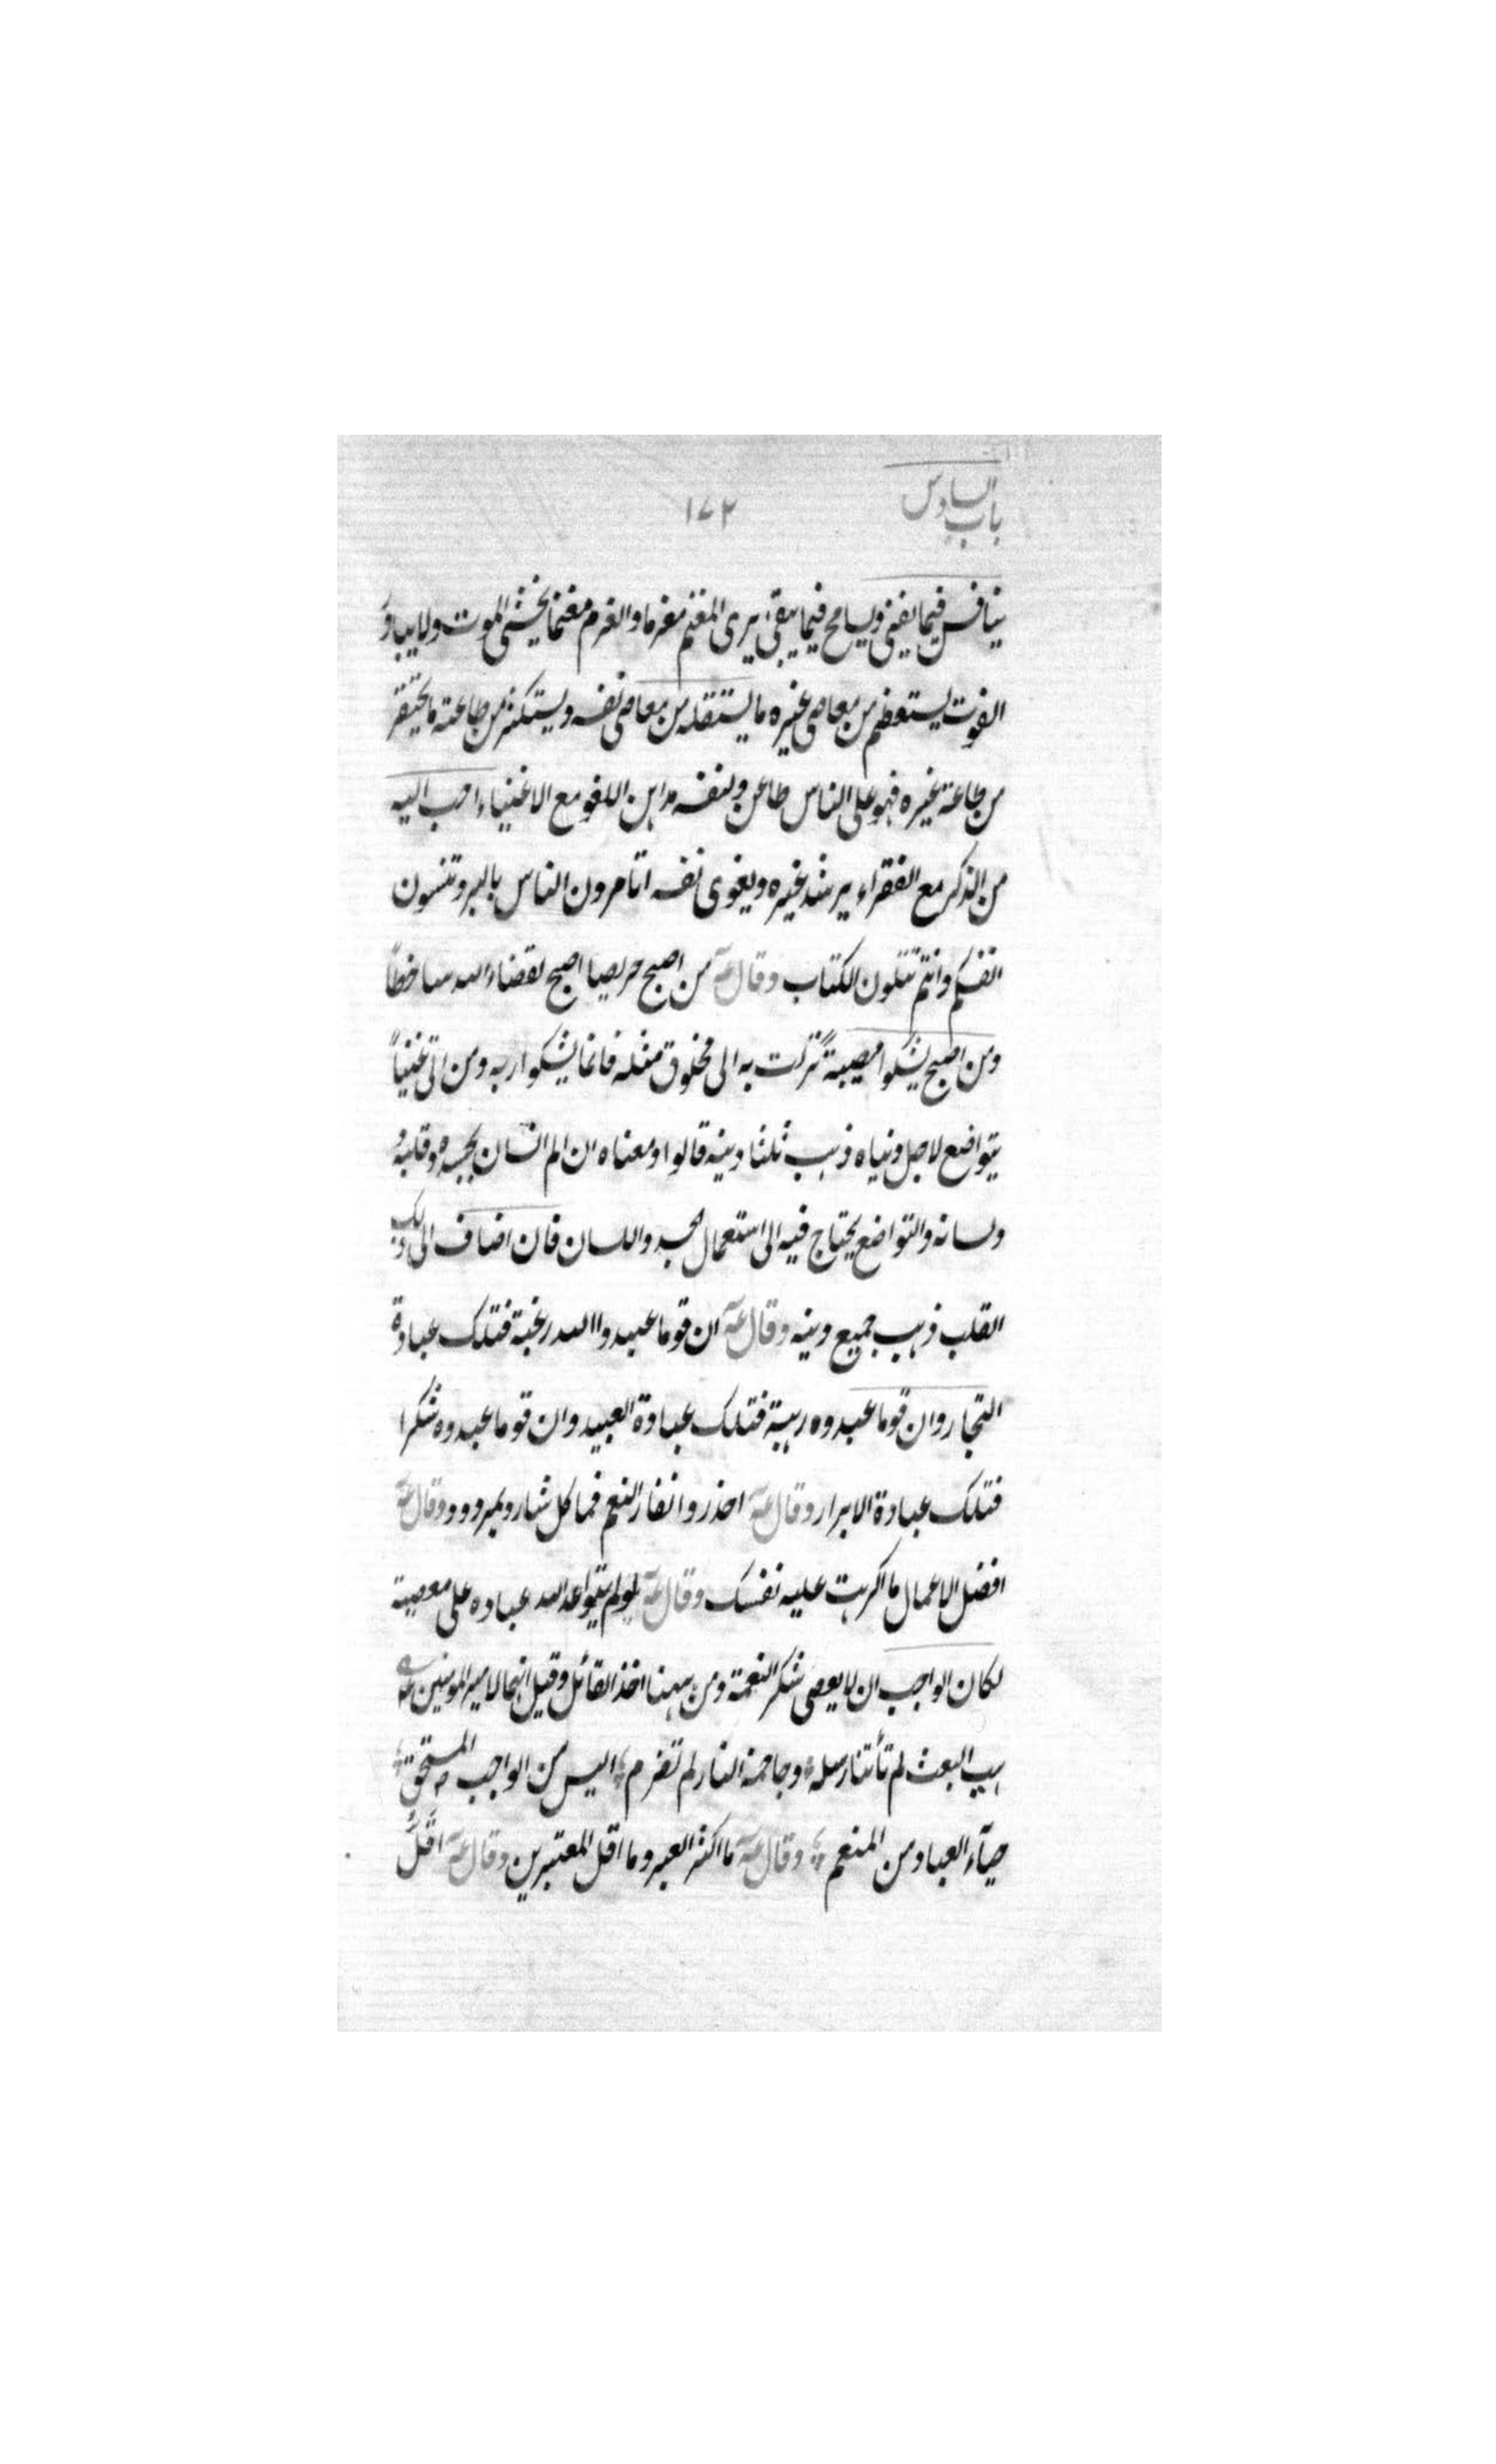 باب السادس
١٧٢
ينافس فيما يفنى ويسامح فيما يبقى يرى المغنم مغرما والغرم مغنما يخشى الموت ولا يبادر
الفوت يستعظم من معاصى غيره ما يستقله من معاصى نفسه ويستكثر من طاعته ما يحتقر
من طاعة غيره فهو على الناس طاعن ولنفسه مداهن اللغو مع الاغنياء احب اليه
من الذكر مع الفقراء يرشد غيره ويغوى نفسه اتامرون الناس بالبر وتنسون
انفسكم وانتم تتلون الكتاب وقال عه من اصبح حريصا اصبح لقضاء الله ساخطاً
ومن اصبح يشكوا مصيبةً نزلت به الى مخلوق مثله فانما يشكوا ربه ومن اتى غنياً
يتواضع لاجل دنياه ذهب ثلثا دينه قالوا ومعناه ان المرء انسان بجسده وقلبه
ولسانه والتواضع يحتاج فيه الى استعمال الجسد واللسان فان اضاف الى ذلك
القلب ذهب جميع دينه وقال عه ان قوما عبدوا الله رغبة فتلك عبادة
التجار وان قوما عبدوه رهبة فتلك عبادة العبيد وان قوما عبدوه شكرا
فتلك عبادة الابرار وقال عه احذروا نفار النعم فما كل شارد بمردود وقال عه
افضل الاعمال ما اكرهت عليه نفسك وقال عه لو لم يتواعد الله عباده على معصية
لكان الواجب ان لا يعصى شكر النعمة ومن ههنا اخذ القائل وقيل انها لامير المومنين عه
هب البعث لم تأتنا رسله وجاحمة النار لم تضرم اليس من الواجب المستحق
حيآء العباد من المنعم وقال عه ما اكثر العبر وما اقل المعتبرين وقال عه اقلُّ